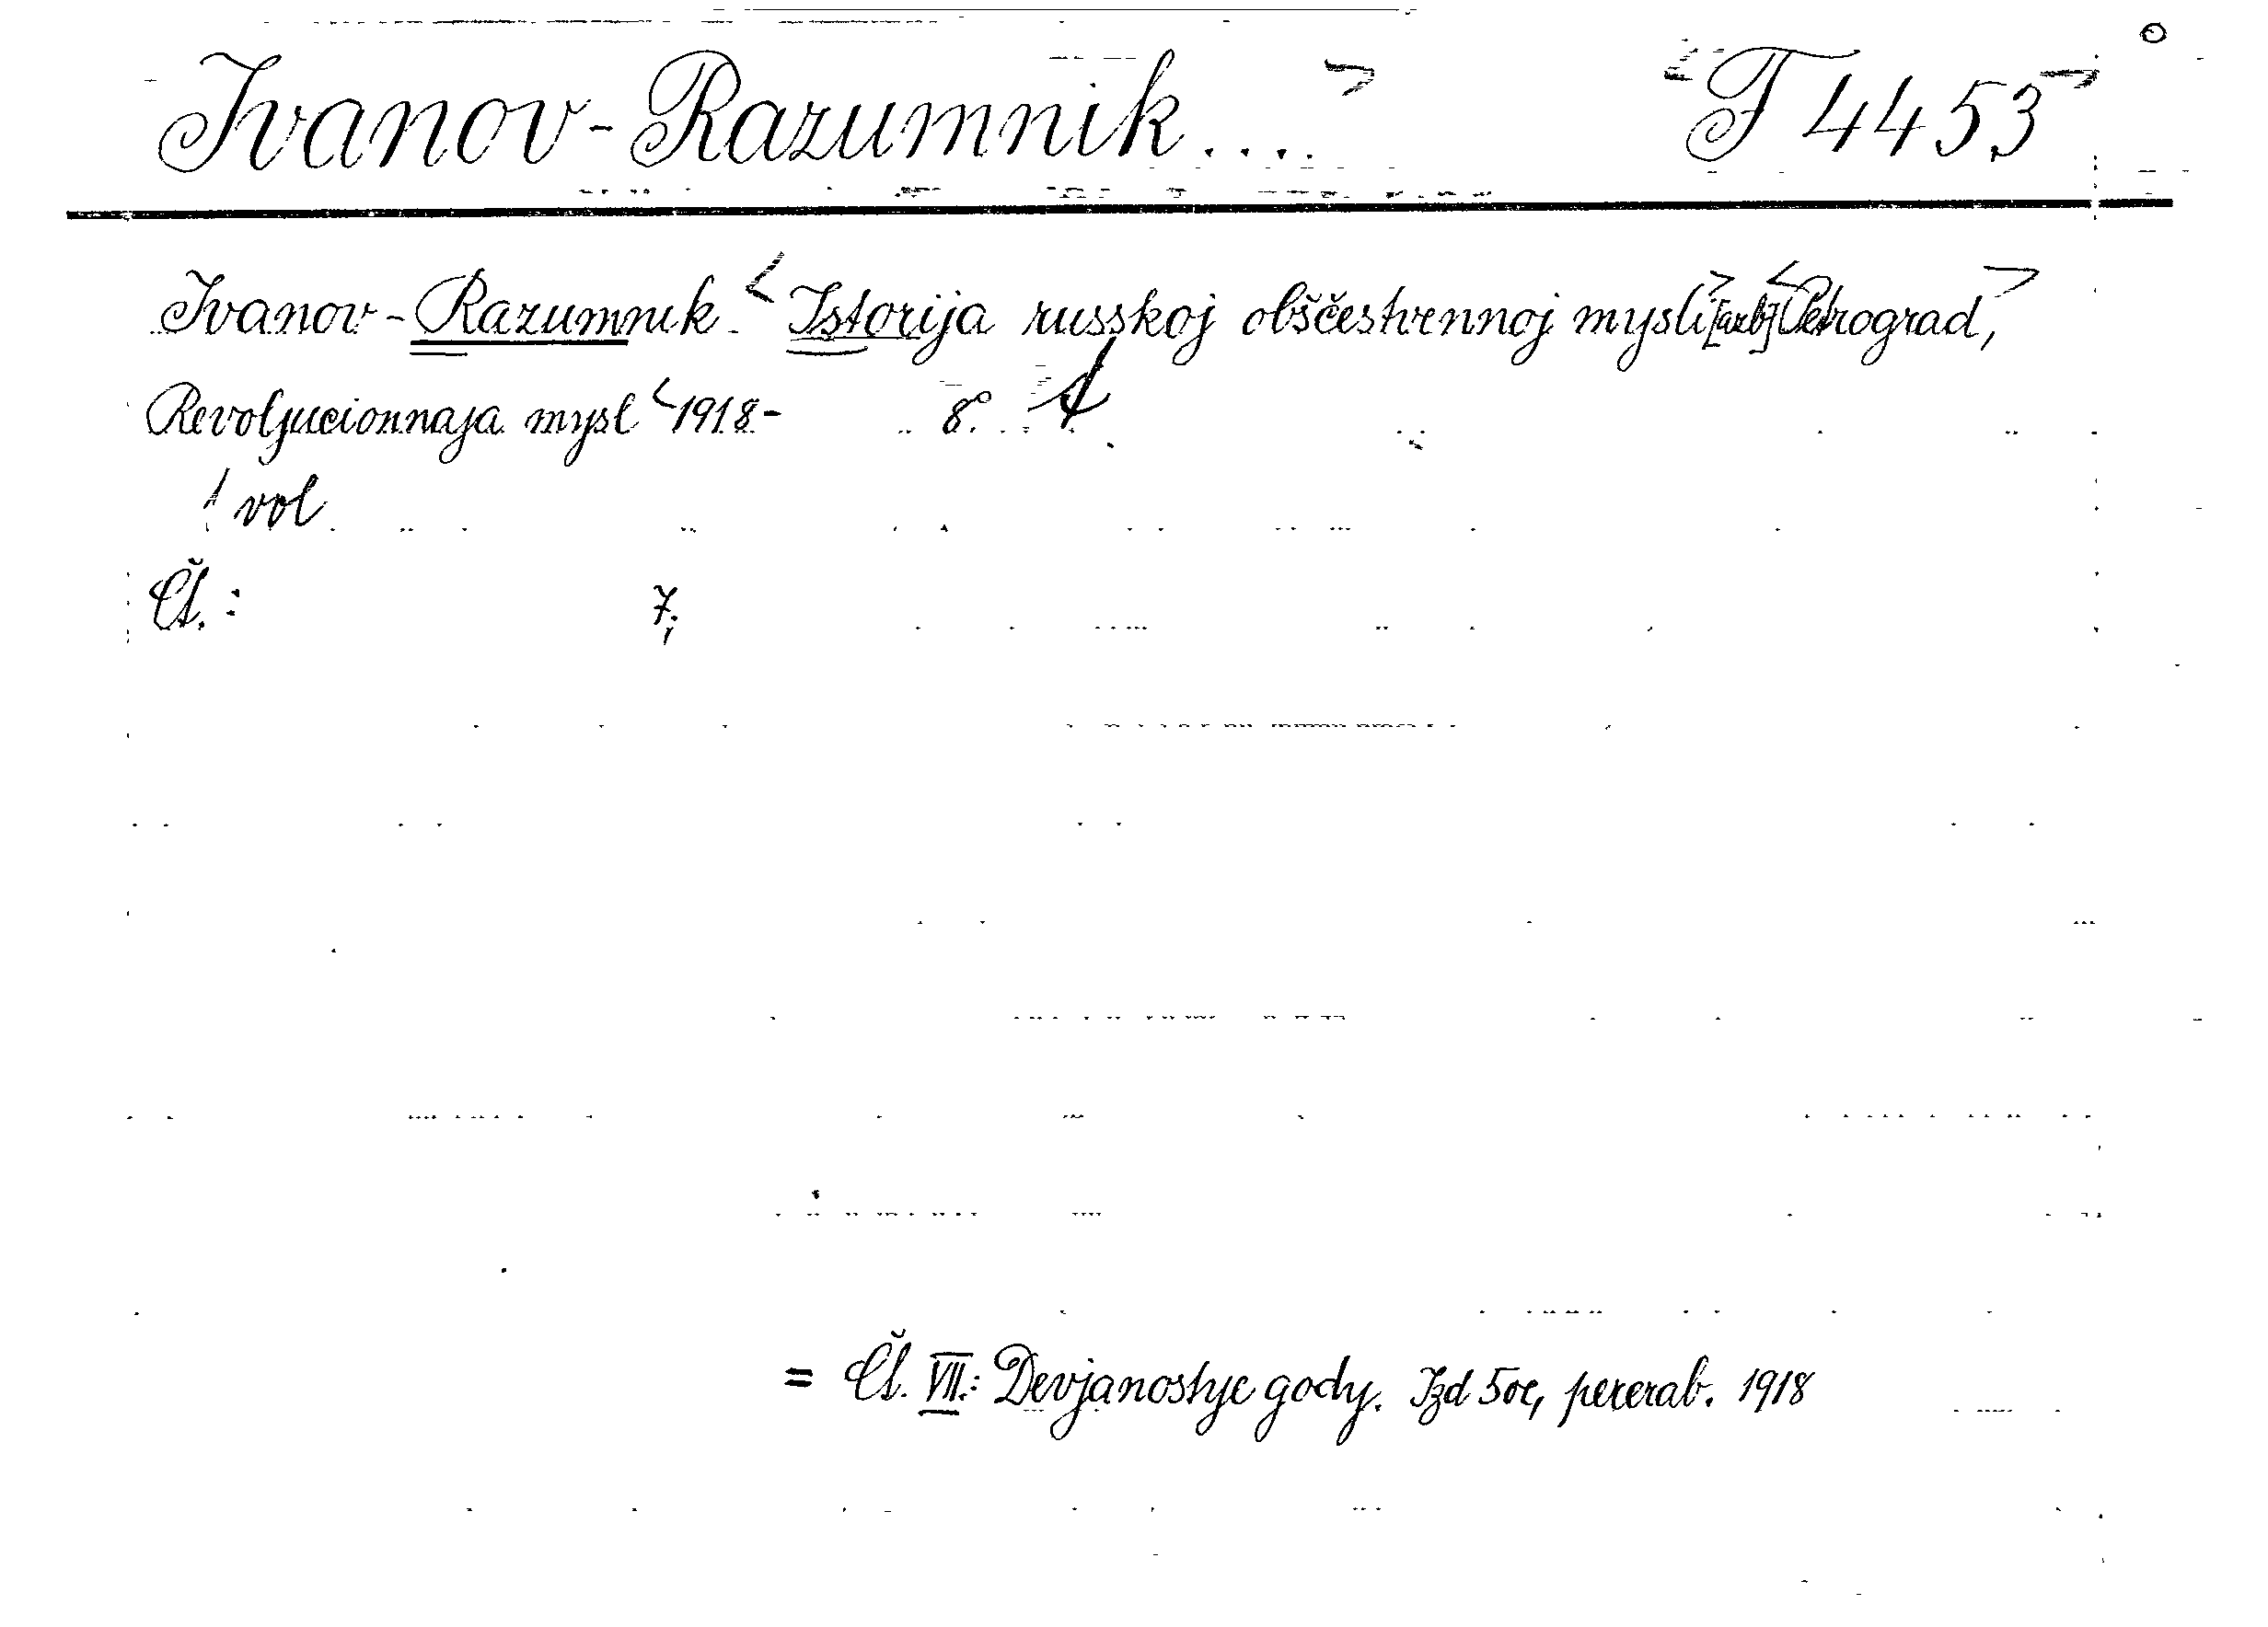 Ivanov-Razumnik.... F 4453
Ivanov-Razumnik. Istorija russkoj obščestvennoj mysli Petrograd,
Revoljucionnaja mysl 1918- 8°.
1 vol
Čt.: 7;
= Čt. VII.: Devjanostye gody. Izd 5oe, pererab. 1918